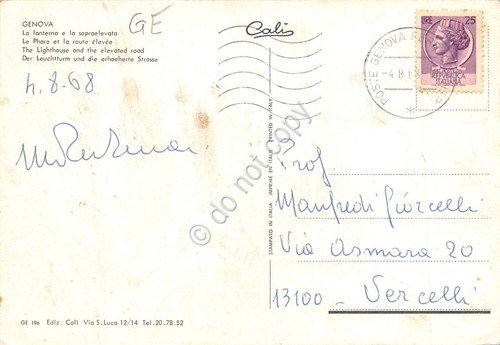 GENOVA
La lanterna e la sopraelevata
Le Phare et la route élevée
The Lighthouse and the elevated road
Der Leuchtturm und die erhoeherte Strasse
GE
Calis
4.8.68
POSTE GENOVA
-4.8.68
LIRE 25
REPUBBLICA
ITALIANA
do not copy
STAMPATO IN ITALIA IMPRIMÉ EN ITALIE PRINTED IN ITALY
Prof
Manfredi Giorcelli
Via Asmara 20
13100 - Vercelli
GE 196 Ediz. Calì Via S. Luca 12/14 Tel. 20.78.52